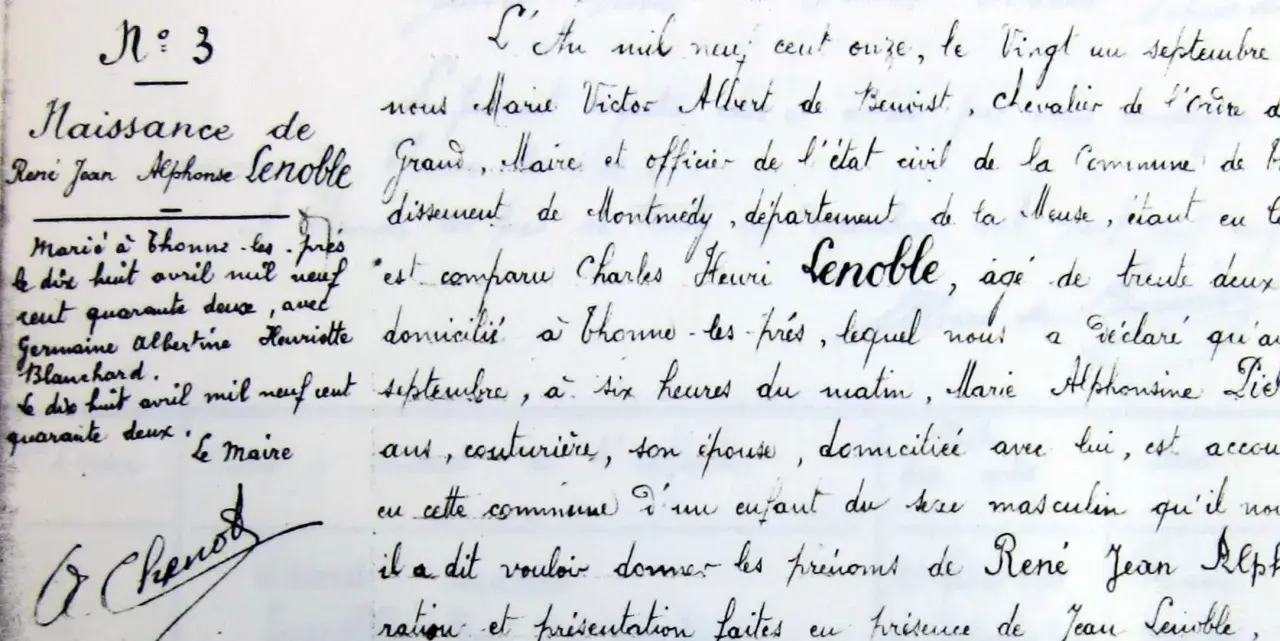 N° 3
Naissance de
René Jean Alphonse Lenoble
Marié à Thonne-les-prés
le dix huit avril mil neuf
cent quarante deux, avec
Germaine Albertine Henriette
Blanchard.
Le dix huit avril mil neuf cent
quarante deux.
Le Maire
Chenot
L'An mil neuf cent onze, le Vingt un septembre
nous Marie Victor Albert de Benoist, Chevalier de l'Ordre d
Grand, Maire et officier de l'état civil de la Commune de
dissement de Montmédy, département de la Meuse, étant en
est comparu Charles Henri Lenoble, âgé de trente deux
domicilié à Thonne-les-prés, lequel nous a déclaré qu'au
septembre, à six heures du matin, Marie Alphonsine
ans, couturière, son épouse, domiciliée avec lui, est accou
en cette commune d'un enfant du sexe masculin qu'il nou
il a dit vouloir donner les prénoms de René Jean Alph
ration et présentation faites en présence de Jean Lenoble,